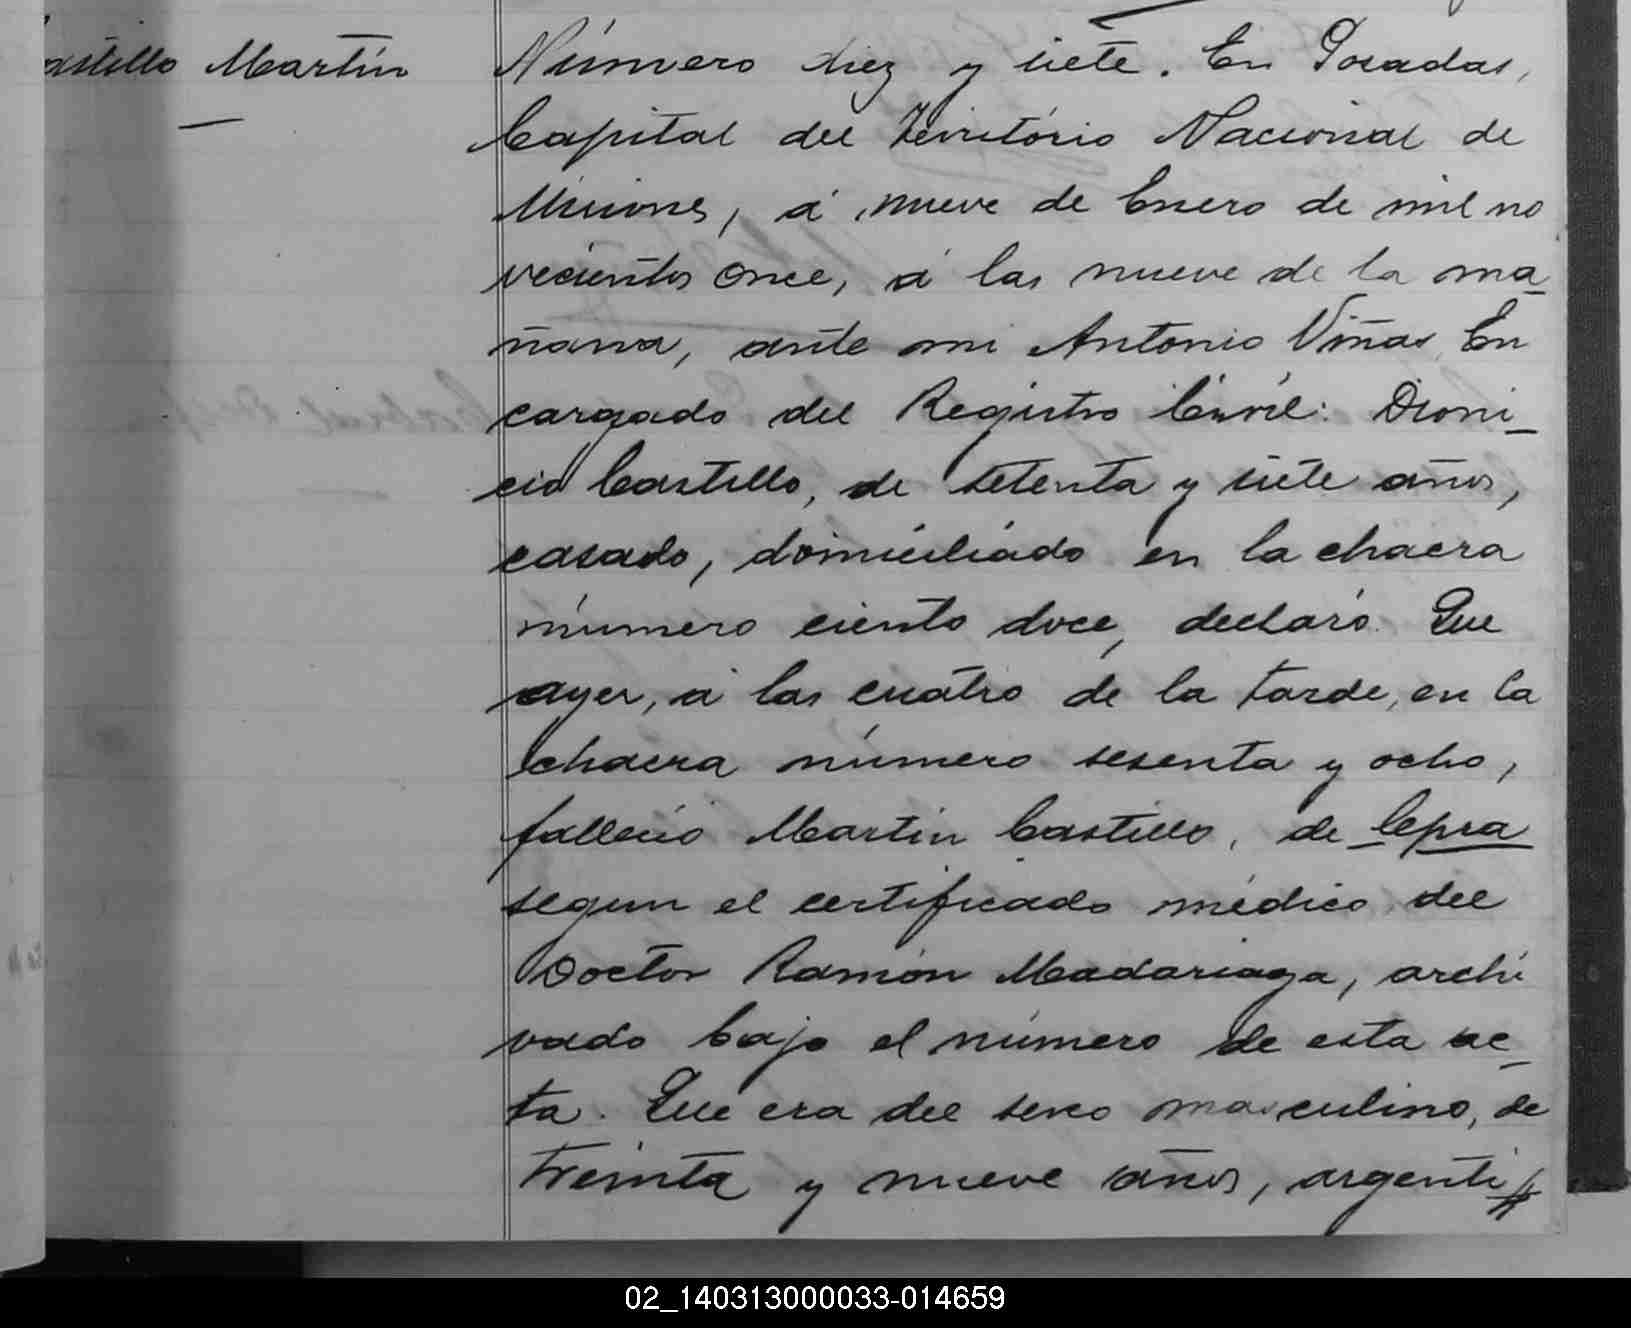 astillo Martín
Número diez y siete. En Posadas,
Capital del Território Nacional de
Misiones, á nueve de Enero de mil no
vecientos once, á las nueve de la ma_
ñana, ante mi Antonio Viñas En
cargado del Registro Civil: Dioni_
cio Castillo, de setenta y siete años,
casado, domiciliado en la chacra
número ciento doce, declaró: Que
ayer, á las cuatro de la tarde, en la
chacra número sesenta y ocho,
falleció Martin Castillo, de lepra
segun el certificado médico del
Doctor Ramón Madariaga, archi
vado bajo el número de esta ac_
ta. Que era del sexo masculino, de
treinta y nueve años, argenti
02_140313000033-014659